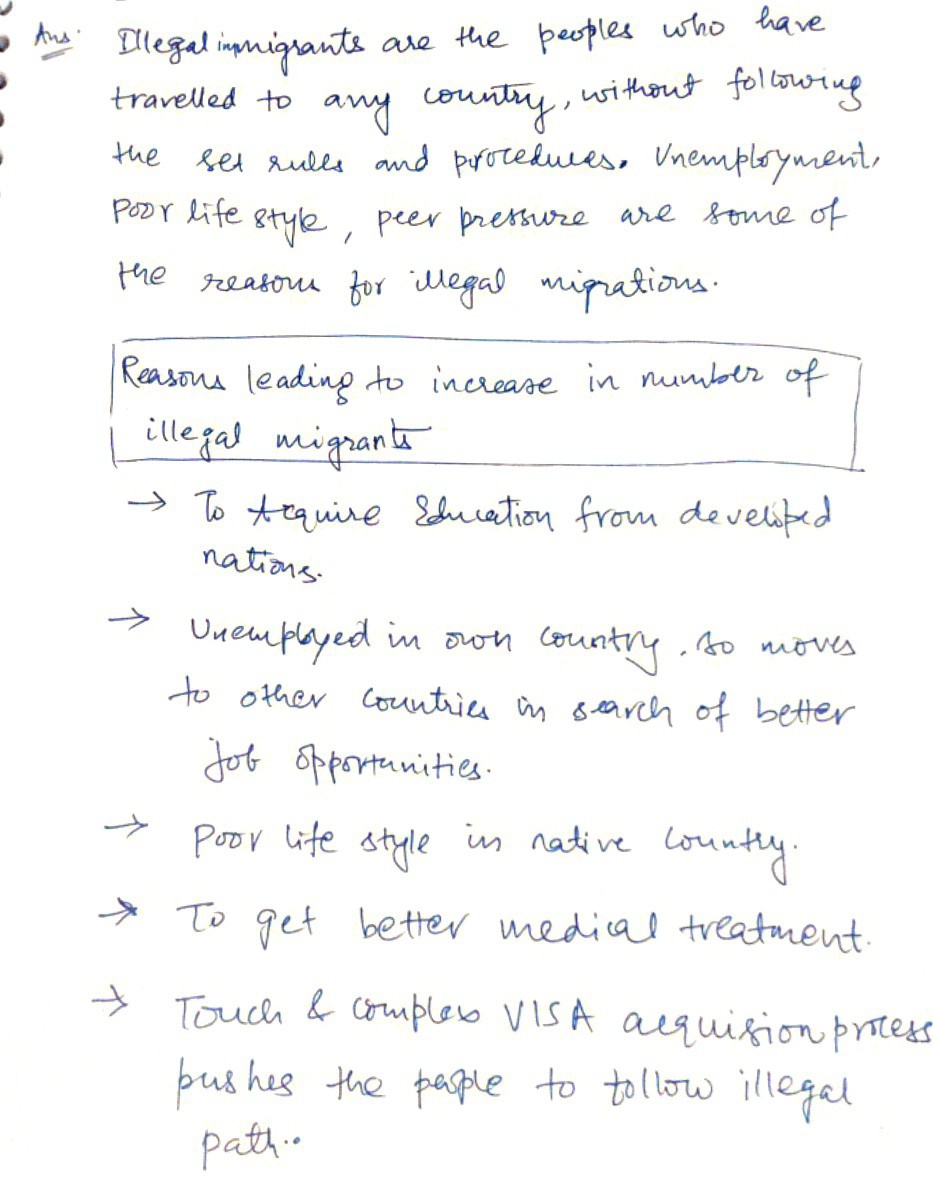 Ans: Illegal immigrants are the peoples who have
travelled to any country, without following
the set rules and procedures. Unemployment,
Poor life style, peer pressure are some of
the reasons for illegal migrations.
Reasons leading to increase in number of
illegal migrants
→ To Acquire Education from developed
nations.
→ Unemployed in own country, so moves
to other countries in search of better
job opportunities.
→ Poor life style in native country.
→ To get better medical treatment.
→ Touch & complex VISA acquision process
pushes the people to follow illegal
path..